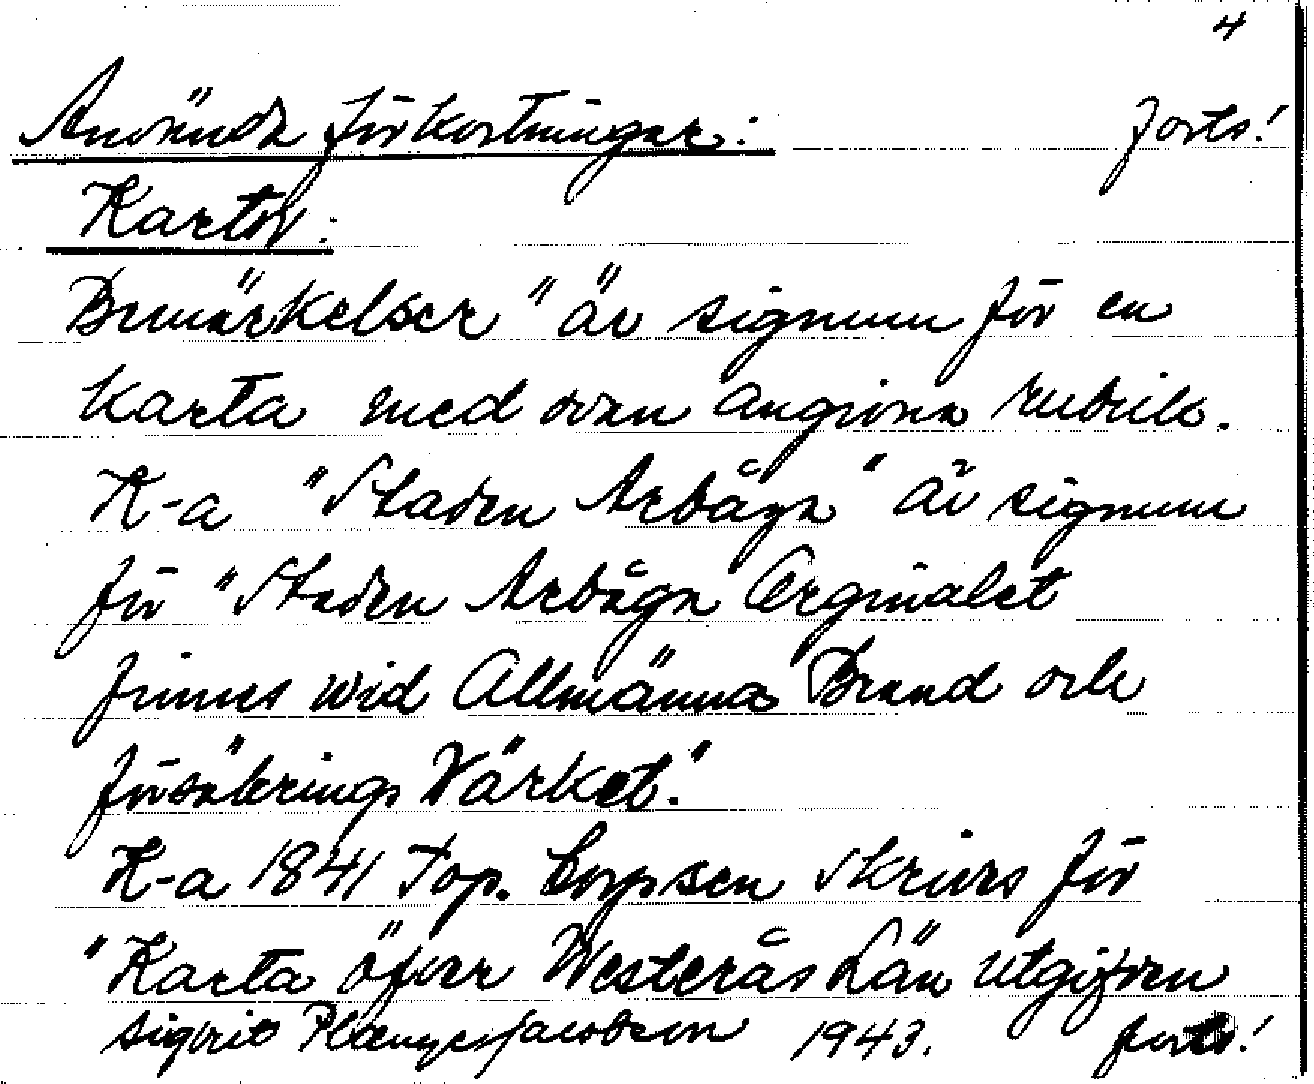 4
Använda förkortningar: forts!
Kartor:
Bemärkelser" är signum för en
karta med ovan angivna rubrik.
K-a "Staden Arbåga" är signum
för "Staden Arbåga Orginalet
finnes wid Allmänna Brand och
försäkrings Wärket."
K-a 1841 Top. Corpsen skrives för
"Karta öfver Westerås Län utgifven
Sigrid 1943. forts!